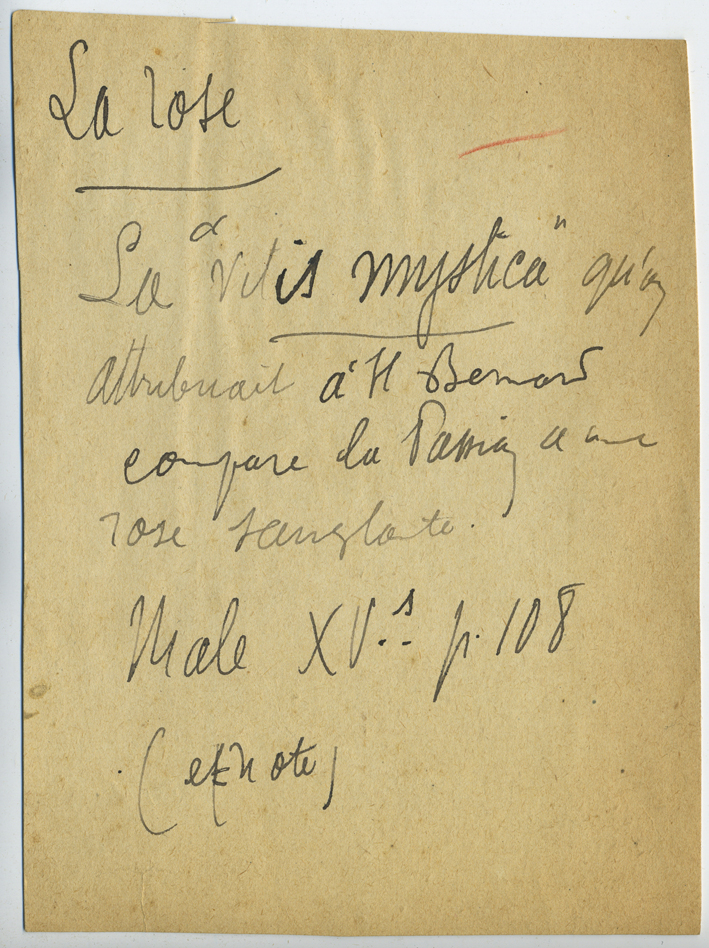 La rose
La "Vitis mystica" qu'on
attribuait à St Bernard
compare la Passion à une
rose sanglante.
Male XV.s p. 108
(et note)